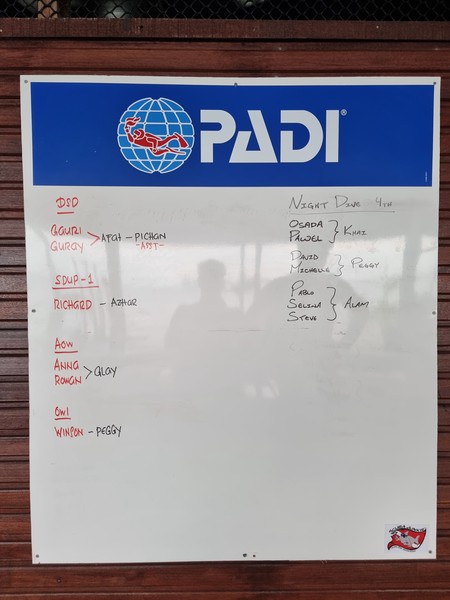 PADI®
DSD
GAURI
GURAY > AFGH - PICHAN
-ASST-
SDUP-1
RICHARD - AZHAR
AOW
ANNA
ROMAN > QLAY
OWI
WINPON - PEGGY
NIGHT DIVE 4TH
OSADA
PAWEL } KHAI
DAVID
MICHELLE } PEGGY
PABLO
SELINA } ALAM
STEVE